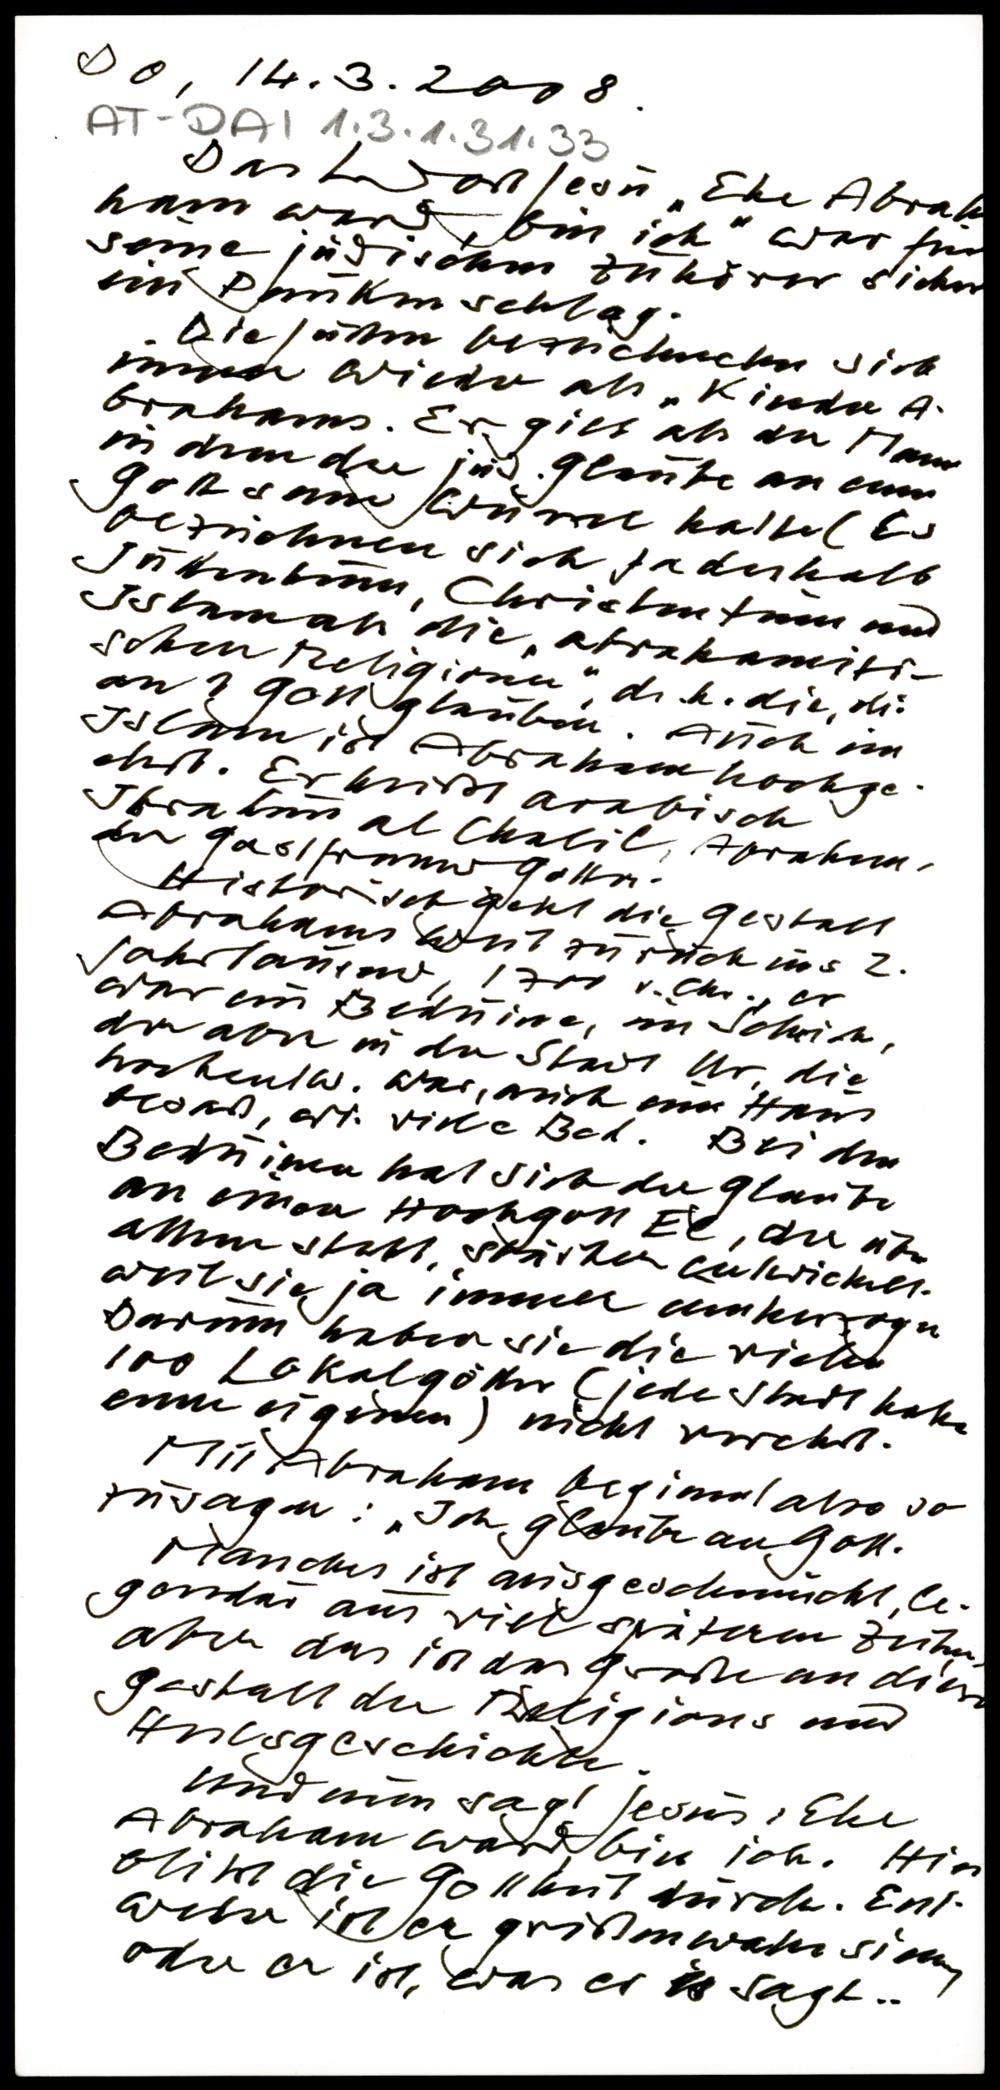 Do, 14.3.2008.
AT-DAI 1.3.1.31.33
Das Wort Jesu „Ehe Abrah
ham ward, bin ich" war für
seine jüdischen Zuhörer sicher
ein Paukenschlag.
Die Juden bezeichneten sich
immer wieder als „Kinder A-
brahams. Er gilt als der Mann
in dem der jüd. Glaube an einen
Gott seine Wurzel hatte (Es
bezeichnen sich ja deshalb
Judentum, Christentum und
Islam als die „abrahamiti-
schen Religionen", d.h. die, die
an 1 Gott glauben. Auch im
Islam ist Abraham hochge-
ehrt. Er heißt arabisch
Ibrahim al Chalil, Abraham,
der Gastfreund Gottes.
Historisch geht die Gestalt
Abrahams weit zurück ins 2.
Jahrtausend, 1700 v. Chr., er
war ein Beduine, ein Scheich,
der aber in der Stadt Ur, die
hochentw. war, auch ein Haus
besaß, viele Bed. Bei den
Beduinen hat sich der Glaube
an einen Hochgott El, der über
allem steht, stärker entwickelt.
weil sie ja immer umherzogen
Darum haben sie die vielen
100 Lokalgötter (jede Stadt hatte
einen eigenen) nicht verehrt.
Mit Abraham beginnt also so
zusagen: „Ich glaube an Gott.
Manches ist ausgeschmückt, le-
gendär aus viel späteren Zeiten,
aber das ist das Große an dieser
Gestalt der Religions und
Heilsgeschichte.
Und nun sagt Jesus: Ehe
Abraham ward, bin ich. Hier
blitzt die Gottheit durch. Ent-
weder ist er größenwahnsinnig
oder er ist, was er sagt..